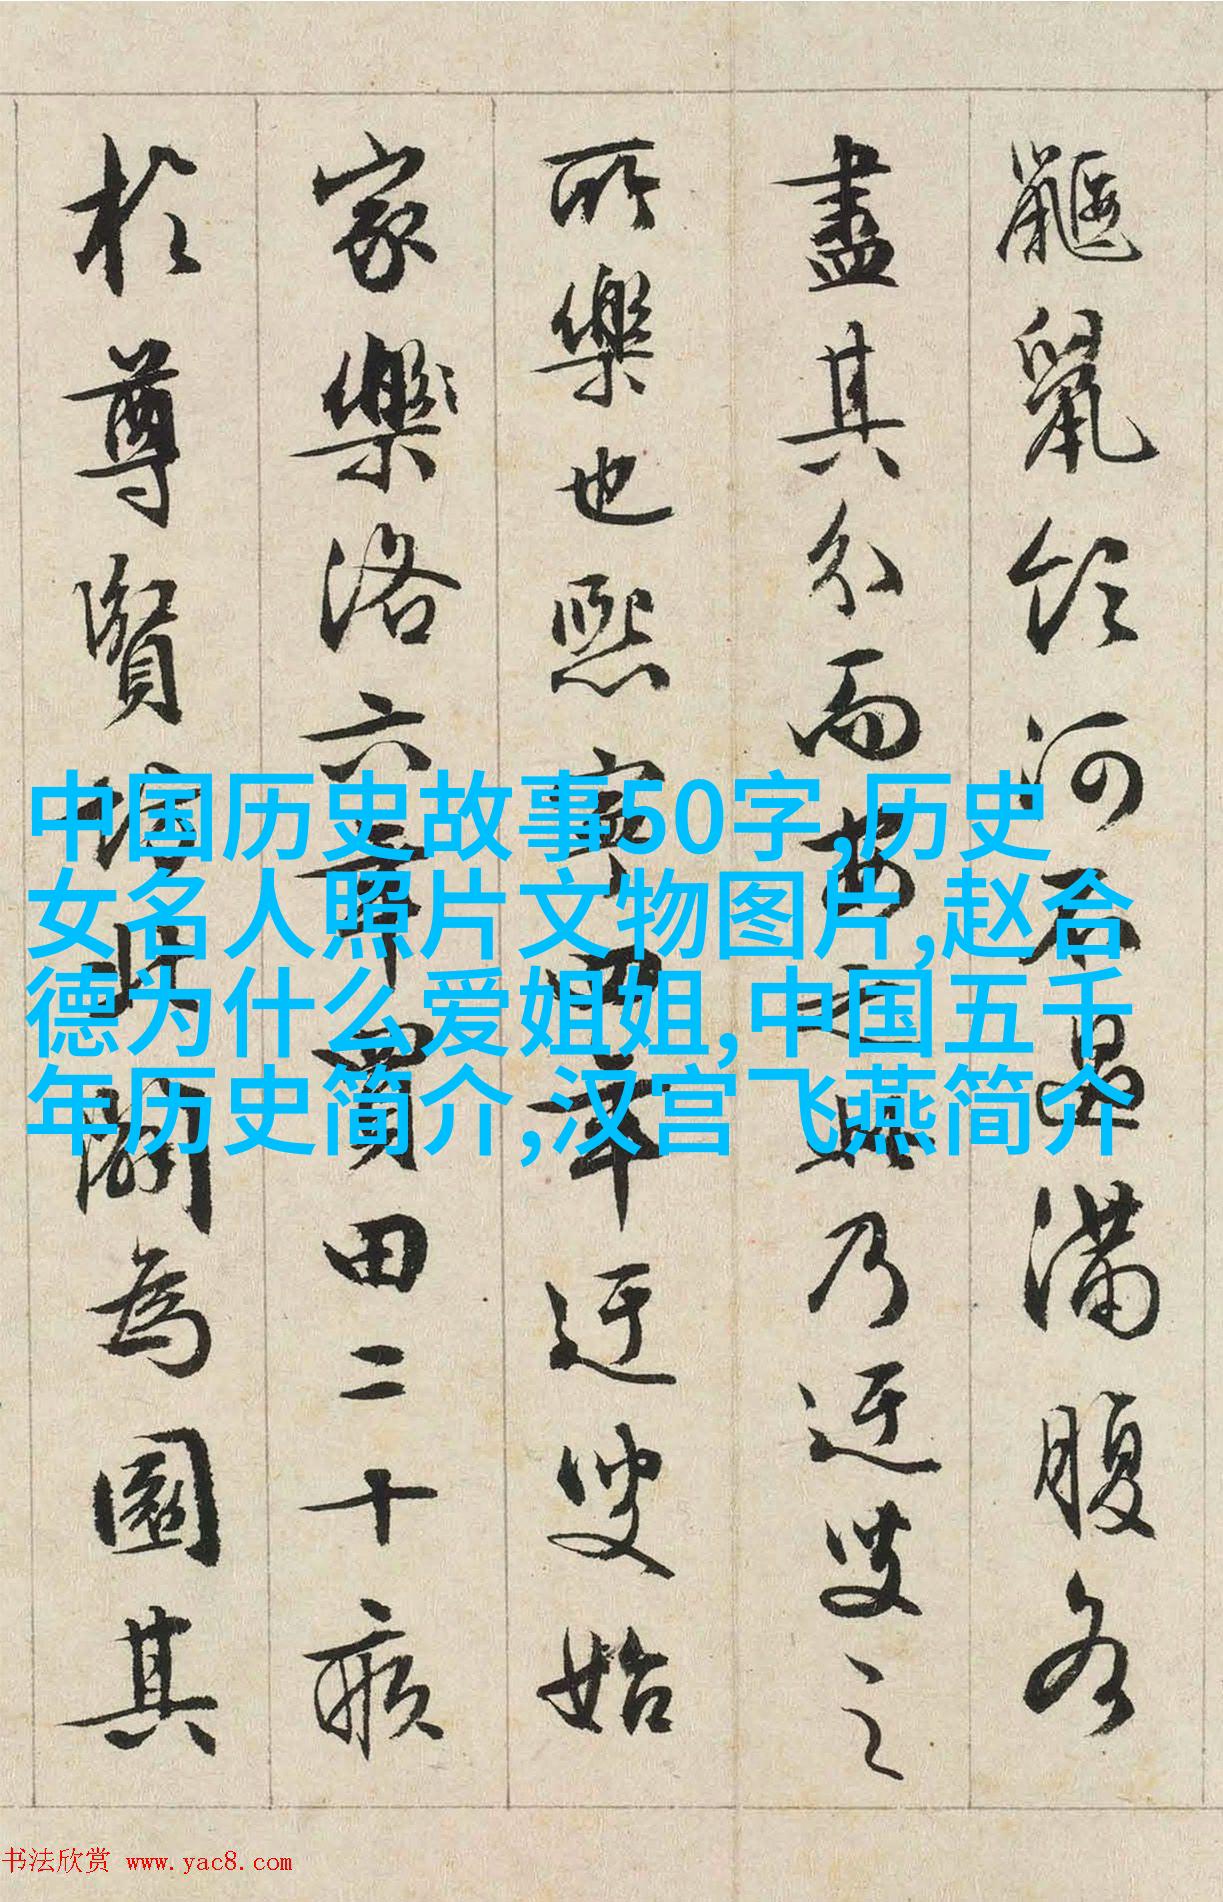 鼴鼠飲河不過滿腹各
盡其分而安之此乃迂叟之
所樂也熙寧四年迂叟始
家樂洛六年買田二十畝
於尊賢坊北闢為園其
中国历史故事50字,历史
女名人照片文物图片,赵合
德为什么爱姐姐,中国五千
年历史简介,汉宫飞燕简介
书法欣赏 www.yac8.com